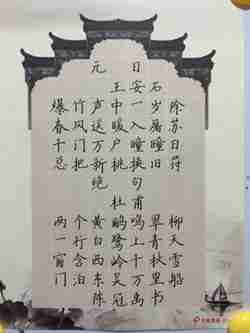 元日
王安石
爆竹声中一岁除
春风送暖入屠苏
千门万户瞳瞳日
总把新桃换旧符
绝句
杜甫
两个黄鹂鸣翠柳
一行白鹭上青天
窗含西岭千秋雪
门泊东吴万里船
陈冠 书